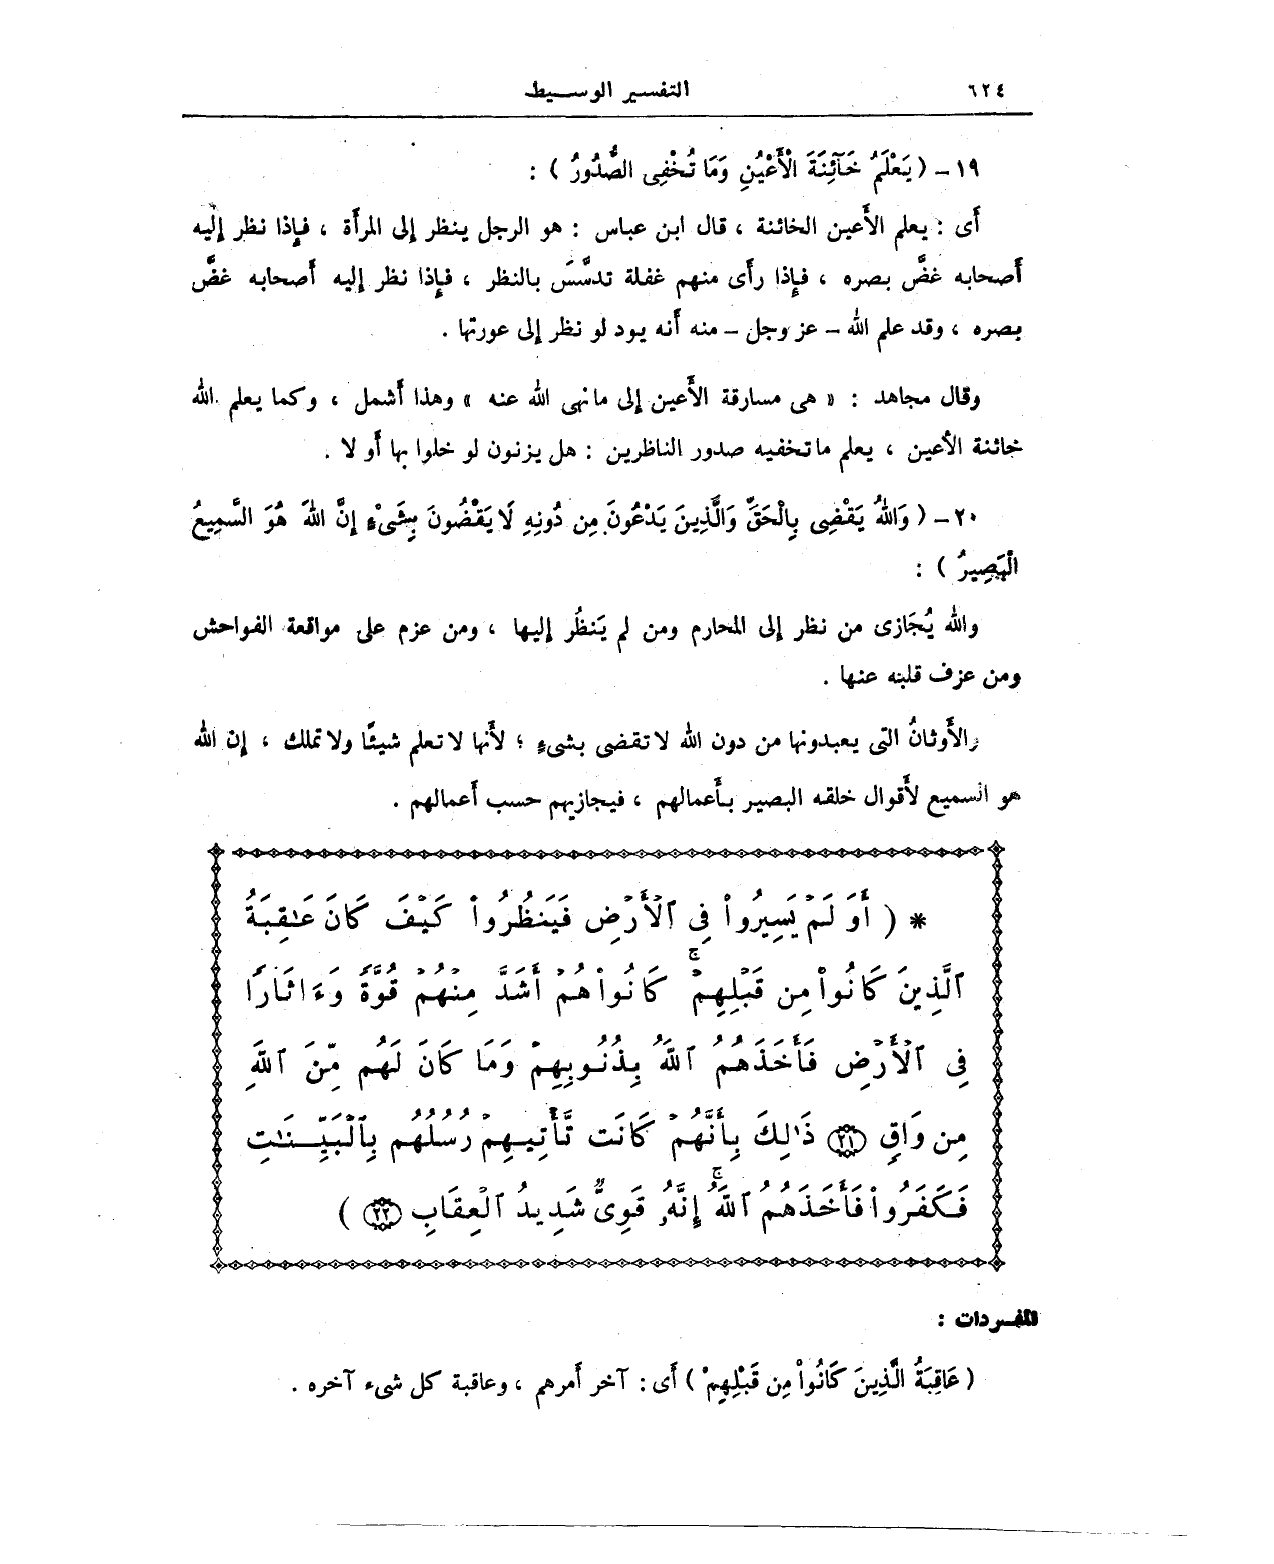 ٦٢٤
التفسير الوسيط
١٩ – ( يَعْلَمُ خَآئِنَةَ الْأَعْيُنِ وَمَا تُخْفِى الصُّدُورُ ) :
أَى : يعلم الأَعين الخائنة ، قال ابن عباس : هو الرجل ينظر إلى المرأَة ، فإِذا نظر إِليه
أَصحابه غضَّ بصره ، فإِذا رأَى منهم غفلة تدسَّسَ بالنظر ، فإِذا نظر إِليه أَصحابه غضَّ
بصره ، وقد علم الله – عز وجل – منه أَنه يود لو نظر إلى عورتها .
وقال مجاهد : « هى مسارقة الأَعين إلى ما نهى الله عنه » وهذا أَشمل ، وكما يعلم الله
خائنة الأعين ، يعلم ما تخفيه صدور الناظرين : هل يزنون لو خلوا بها أَو لا .
٢٠ – ( وَاللهُ يَقْضِى بِالْحَقِّ وَالَّذِينَ يَدْعُونَ مِن دُونِهِ لَا يَقْضُونَ بِشَىْءٍ إِنَّ اللهَ هُوَ السَّمِيعُ
الْبَصِيرُ ) :
والله يُجَازى من نظر إلى المحارم ومن لم يَنظُر إليها ، ومن عزم على مواقعة الفواحش
ومن عزف قلبه عنها .
والأَوثانُ التى يعبدونها من دون الله لا تقضى بشىءٍ ؛ لأَنها لا تعلم شيئًا ولا تملك ، إن الله
هو السميع لأَقوال خلقه البصير بأَعمالهم ، فيجازيهم حسب أَعمالهم .
* ( أَوَ لَمْ يَسِيرُواْ فِى ٱلْأَرْضِ فَيَنظُرُواْ كَيْفَ كَانَ عَـٰقِبَةُ
ٱلَّذِينَ كَانُواْ مِن قَبْلِهِمْ ۚ كَانُواْ هُمْ أَشَدَّ مِنْهُمْ قُوَّةً وَءَاثَارًا
فِى ٱلْأَرْضِ فَأَخَذَهُمُ ٱللَّهُ بِذُنُوبِهِمْ وَمَا كَانَ لَهُم مِّنَ ٱللَّهِ
مِن وَاقٍ ٢١ ذَٰلِكَ بِأَنَّهُمْ كَانَت تَّأْتِيهِمْ رُسُلُهُم بِٱلْبَيِّنَـٰتِ
فَكَفَرُواْ فَأَخَذَهُمُ ٱللَّهُ ۚ إِنَّهُۥ قَوِىٌّ شَدِيدُ ٱلْعِقَابِ ٢٢ )
المفردات :
( عَاقِبَةُ الَّذِينَ كَانُواْ مِن قَبْلِهِمْ ) أَى : آخر أَمرهم ، وعاقبة كل شىء آخره .